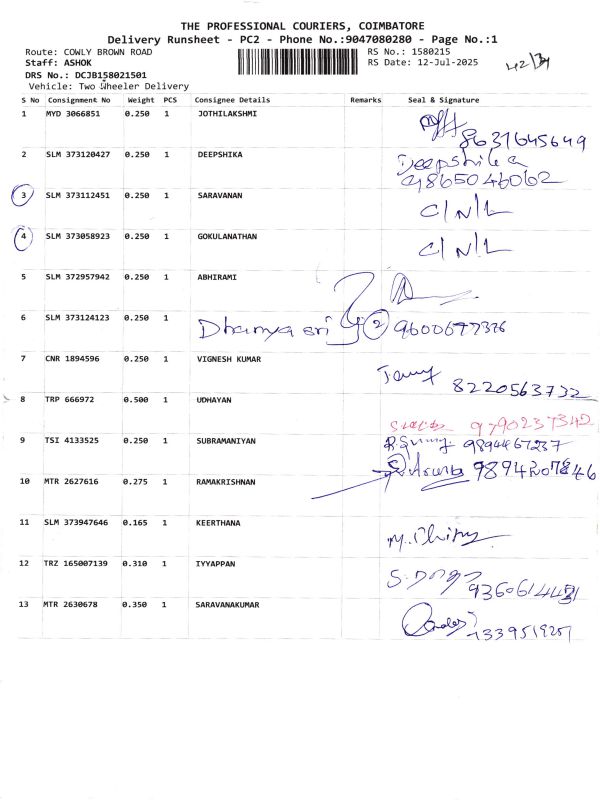 THE PROFESSIONAL COURIERS, COIMBATORE
Delivery Runsheet - PC2 - Phone No.:9047080280 - Page No.:1
Route: COWLY BROWN ROAD
RS No.: 1580215
Staff: ASHOK
RS Date: 12-Jul-2025
DRS No.: DCJB158021501
Vehicle: Two Wheeler Delivery
S No Consignment No Weight PCS Consignee Details Remarks Seal & Signature
1 MYD 3066851 0.250 1 JOTHILAKSHMI
8631645649
2 SLM 373120427 0.250 1 DEEPSHIKA Deepshika
9865046062
3 SLM 373112451 0.250 1 SARAVANAN C/N/L
4 SLM 373058923 0.250 1 GOKULANATHAN C/N/L
5 SLM 372957942 0.250 1 ABHIRAMI
6 SLM 373124123 0.250 1 Dhanya sri 2 9600677376
7 CNR 1894596 0.250 1 VIGNESH KUMAR
8220563732
8 TRP 666972 0.500 1 UDHAYAN
9790237342
9 TSI 4133525 0.250 1 SUBRAMANIYAN 9894467237
9894207846
10 MTR 2627616 0.275 1 RAMAKRISHNAN
11 SLM 373947646 0.165 1 KEERTHANA
12 TRZ 165007139 0.310 1 IYYAPPAN
13 MTR 2630678 0.350 1 SARAVANAKUMAR